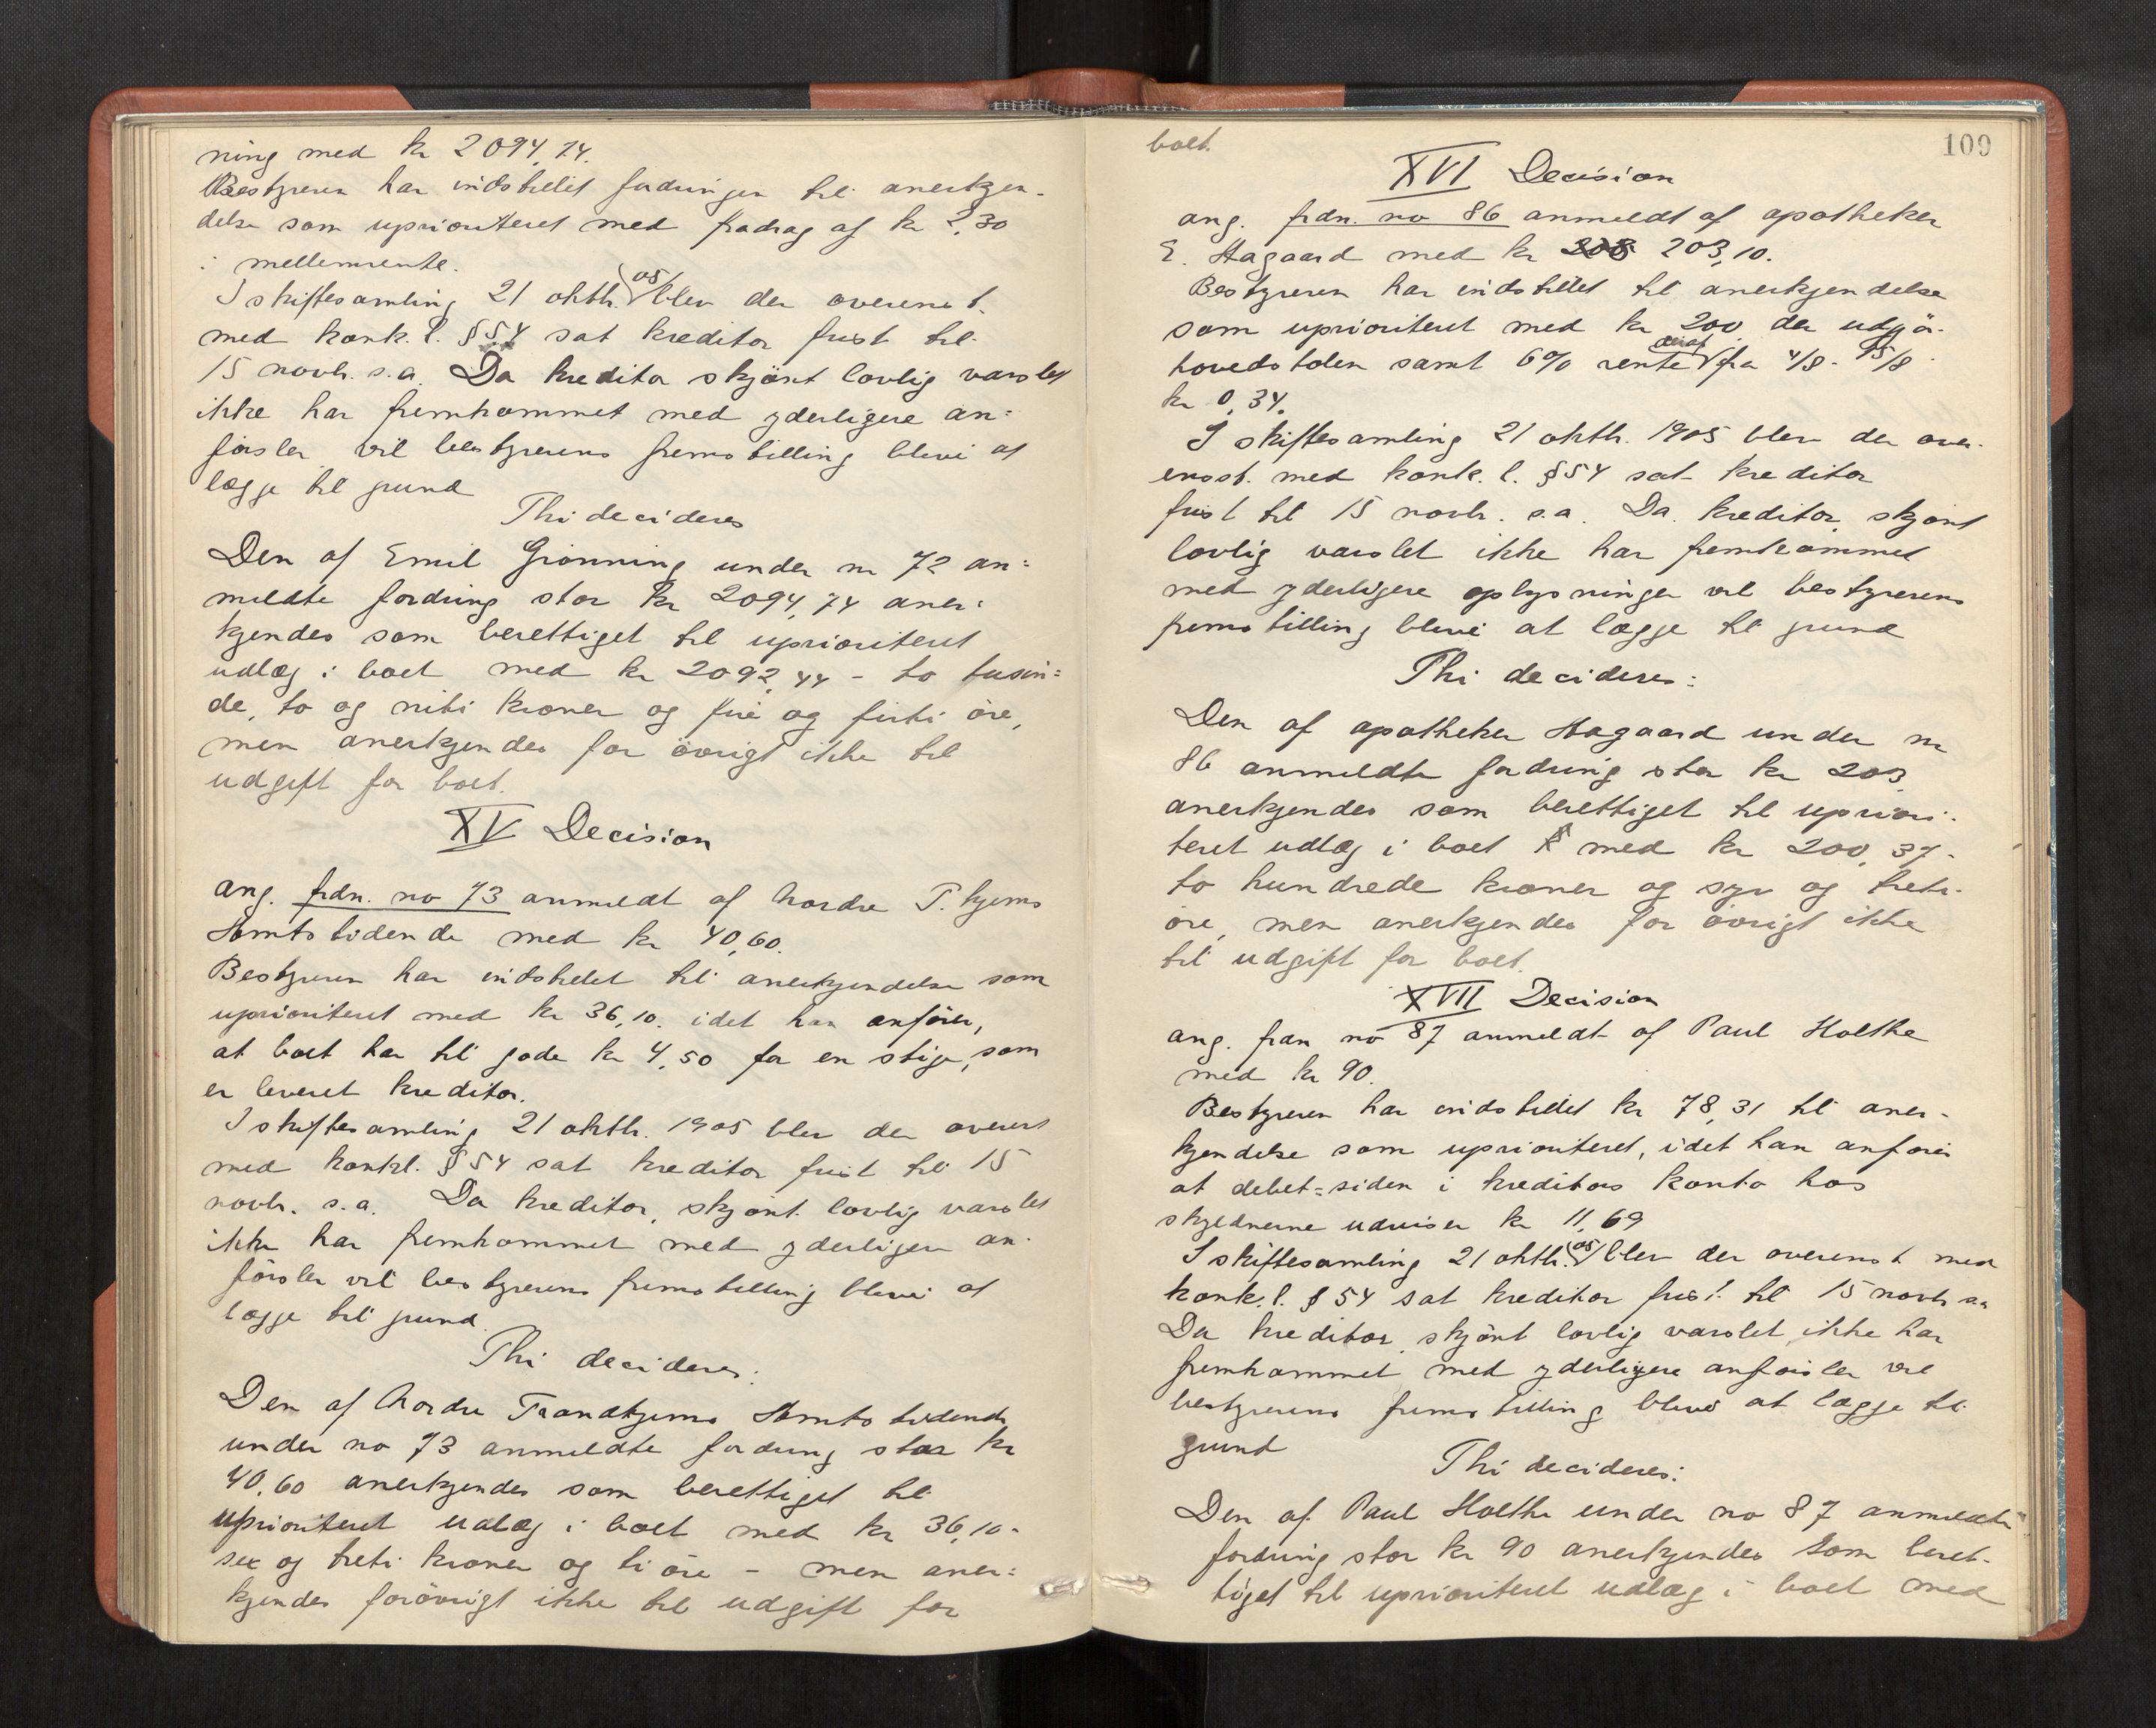 ning med kr 2094,74.
Bestyreren har indstillet fordringen til anerkjen-
delse som uprioriteret med fradrag af kr 2,30
i mellemrente.
I skiftesamling 21 oktbr. 05 blev der overenst.
med konk. l. §54 sat kreditor frist til
15 novbr. s.a. Da kreditor skjönt lovlig varslet
ikke har fremkommet med yderligere an=
førsler vil bestyrerens fremstilling blive at
lægge til grund
Thi decideres
Den af Emil Grönning under nr 72 an=
meldte fordring stor kr 2094,74 aner=
kjendes som berettiget til uprioriteret
udlæg i boet med kr 2092,44 - to tusin=
de, to og niti kroner og fire og firti öre,
men anerkjendes for övrigt ikke til
udgift for boet.
XV Decision
ang. frdn. no 73 anmeldt af Nordre T.hjems
Amtstidende med kr 40,60.
Bestyreren har indstillet til anerkjendelse som
uprioriteret med kr 36,10. idet han anförer,
at boet har til gode kr 4,50 for en stige, som
er leveret kreditor.
I skiftesamling 21 oktbr. 1905 blev der overenst
med konkl. §54 sat kreditor frist til 15
novbr. s.a. Da kreditor, skjönt lovlig varslet
ikke har fremkommet med yderligere an-
försler vil bestyrerens fremstilling blive at
lægge til grund.
Thi decideres:
Den af Nordre Trondhjems Amtstidende
under no 73 anmeldte fordring stor kr
40,60 anerkjendes som berettiget til
uprioriteret udlæg i boet med kr 36,10-
sex og treti kroner og ti öre - men aner=
kjendes forövrigt ikke til udgift for
boet.
109
XVI Decision
ang. frdn. no 86 anmeldt af apotheker
E. Hagaard med kr 203,10.
Bestyreren har indstillet til anerkjendelse
som uprioriteret med kr 200, der udgjör
hovedstolen samt 6% rente deraf fra 4/8 - 15/8
kr 0,34.
I skiftesamling 21 oktbr. 1905 blev der over-
enst. med konk. l. §54 sat kreditor
frist til 15 novbr. s.a. Da kreditor, skjönt
lovlig varslet ikke har fremkommet
med yderligere oplysninger vil bestyrerens
fremstilling blive at lægge til grund
Thi decideres:
Den af apotheker Hagaard under nr
86 anmeldte fordring stor kr 203
anerkjendes som berettiget til upriori-
teret udlæg i boet med kr 200,37-
to hundrede kroner og syv og treti
öre, men anerkjendes for övrigt ikke
til udgift for boet.
XVII Decision
ang. frdn no 87 anmeldt af Paul Holthe
med kr 90.
Bestyreren har indstillet kr 78,31 til aner-
kjendelse som uprioriteret, idet han anförer
at debet=siden i kreditors konto hos
skyldnerne udviser kr 11,69
I skiftesamling 21 oktbr. 05 blev der overenst med
konk. l. § 54 sat kreditor frist til 15 novbr s.a
Da kreditor, skjönt lovlig varslet, ikke har
fremkommet med yderligere anförsler vil
bestyrerens fremstilling blive at lægge til
grund
Thi decideres:
Den af Paul Holthe under no 87 anmeldte
fordring stor kr 90 anerkjendes som beret-
tiget til uprioriteret udlæg i boet med